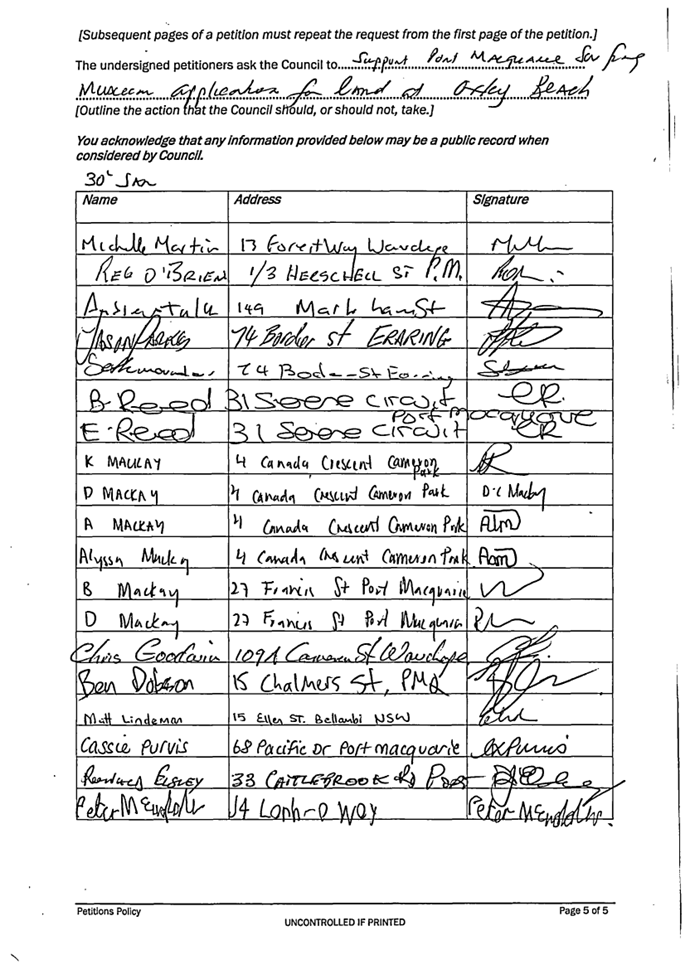 [Subsequent pages of a petition must repeat the request from the first page of the petition.]
The undersigned petitioners ask the Council to Support Port Macquarie Surfing
Museum application for land at Oxley Beach
[Outline the action that the Council should, or should not, take.]
You acknowledge that any information provided below may be a public record when
considered by Council.
30th Jan
Name Address Signature
Michelle Martin 13 Forest Way Wauchope
REG O'BRIEN 1/3 HERSCHELL ST P.M.
149 Markham St
JASON 74 Border st ERARING
74 St
B. Reed 31 circuit
Port Macquarie
E. Reed 31 circuit ER
K MACKAY 4 Canada Crescent Cameron
Park
D MACKAY 4 Canada Crescent Cameron Park D.C Mackay
A MACKAY 4 Canada Crescent Cameron Park
Alyssa Mackay 4 Canada Crescent Cameron Park
B Mackay 27 Francis St Port Macquarie
D Mackay 27 Francis St Port Macquarie
Chris Goodwin 109A Cameron St Wauchope
Ben Dobson 15 Chalmers St, PMQ
Matt Lindeman 15 Ellen ST. Bellambi NSW
Cassie Purvis 68 Pacific Dr Port macquarie cxpurvis
ELSLEY 33 CATTLEBROOK RD PORT
Peter 14 WAY Peter
Petitions Policy Page 5 of 5
UNCONTROLLED IF PRINTED